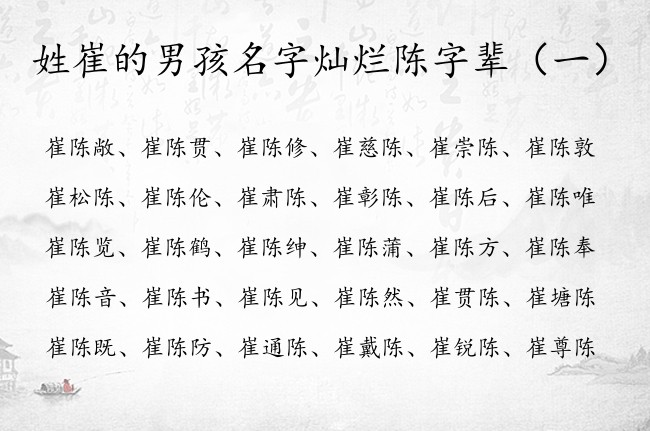 姓崔的男孩名字灿烂陈字辈（一）
崔陈敞、崔陈贯、崔陈修、崔慈陈、崔崇陈、崔陈敦
崔松陈、崔陈伦、崔肃陈、崔彰陈、崔陈后、崔陈唯
崔陈览、崔陈鹤、崔陈绅、崔陈蒲、崔陈方、崔陈奉
崔陈音、崔陈书、崔陈见、崔陈然、崔贯陈、崔塘陈
崔陈既、崔陈防、崔通陈、崔戴陈、崔锐陈、崔尊陈